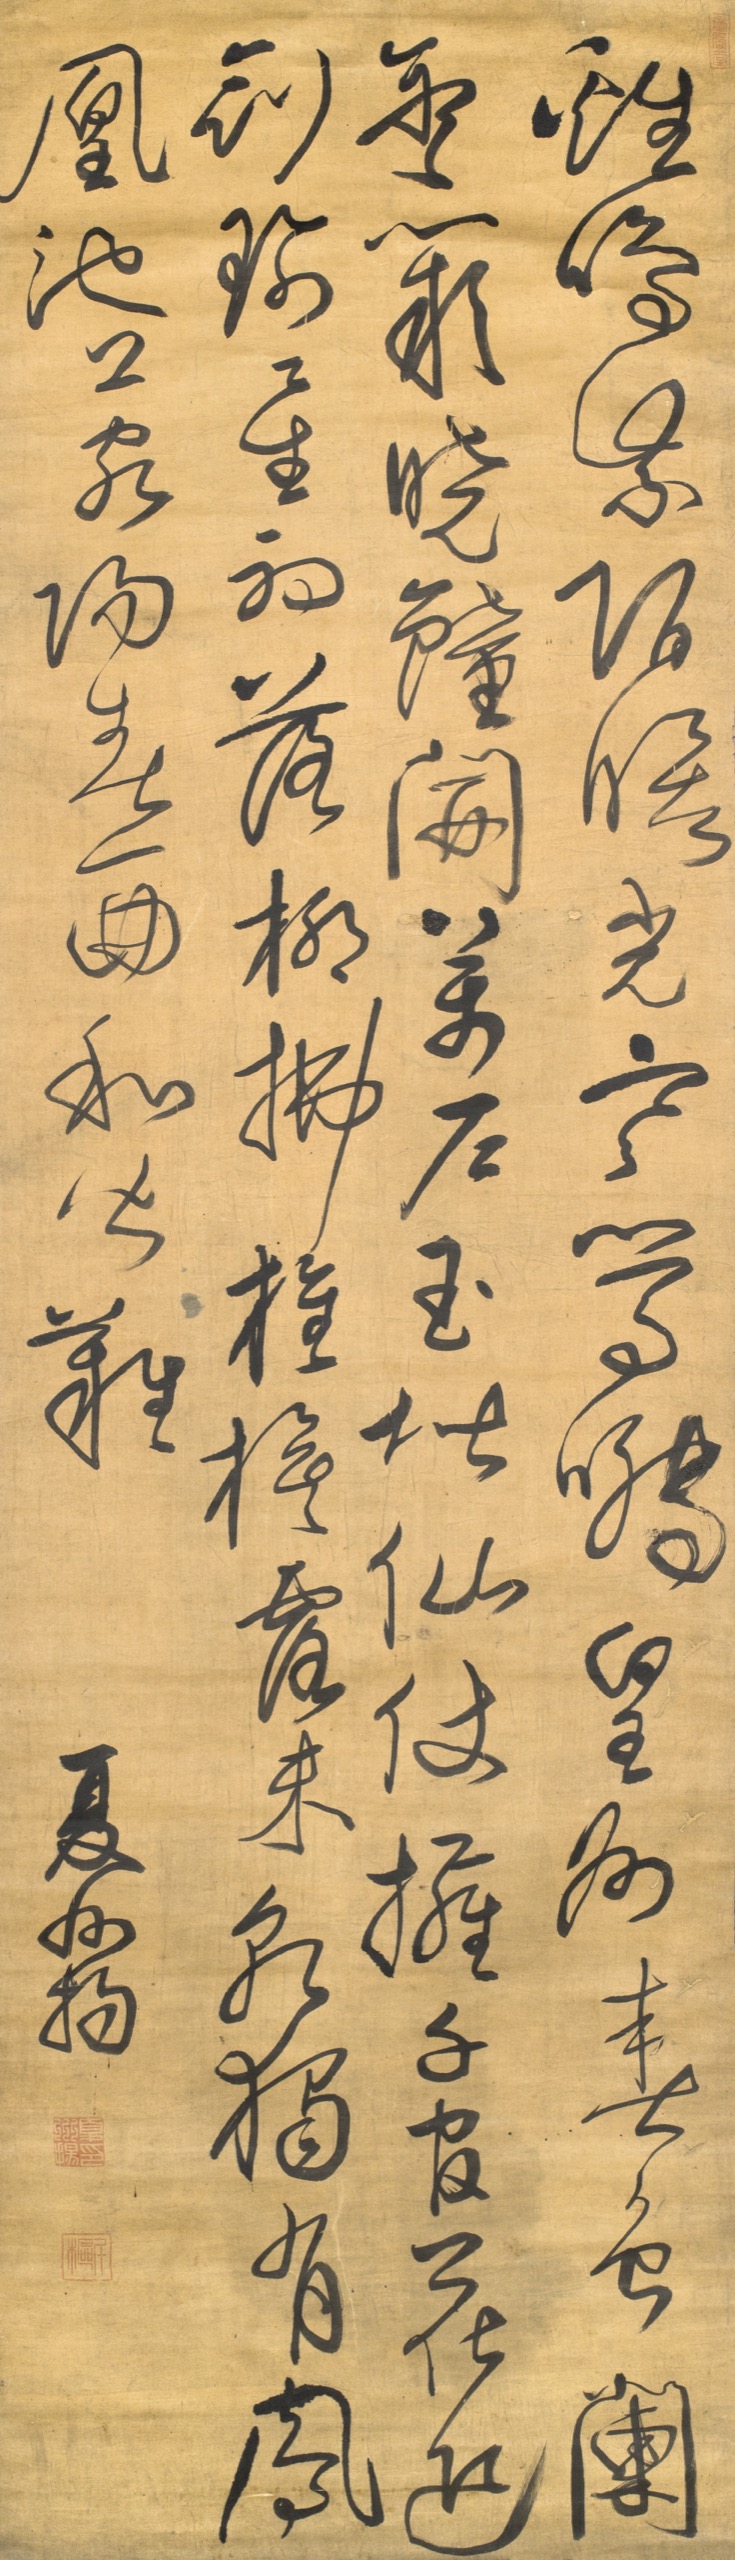 雞鳴紫陌曙光寒鶯囀皇州春色闌
金闕曉鐘開萬戶玉階仙仗擁千官花迎
劍珮星初落柳拂旌旗露未乾獨有鳳
凰池上客陽春一曲和皆難
夏